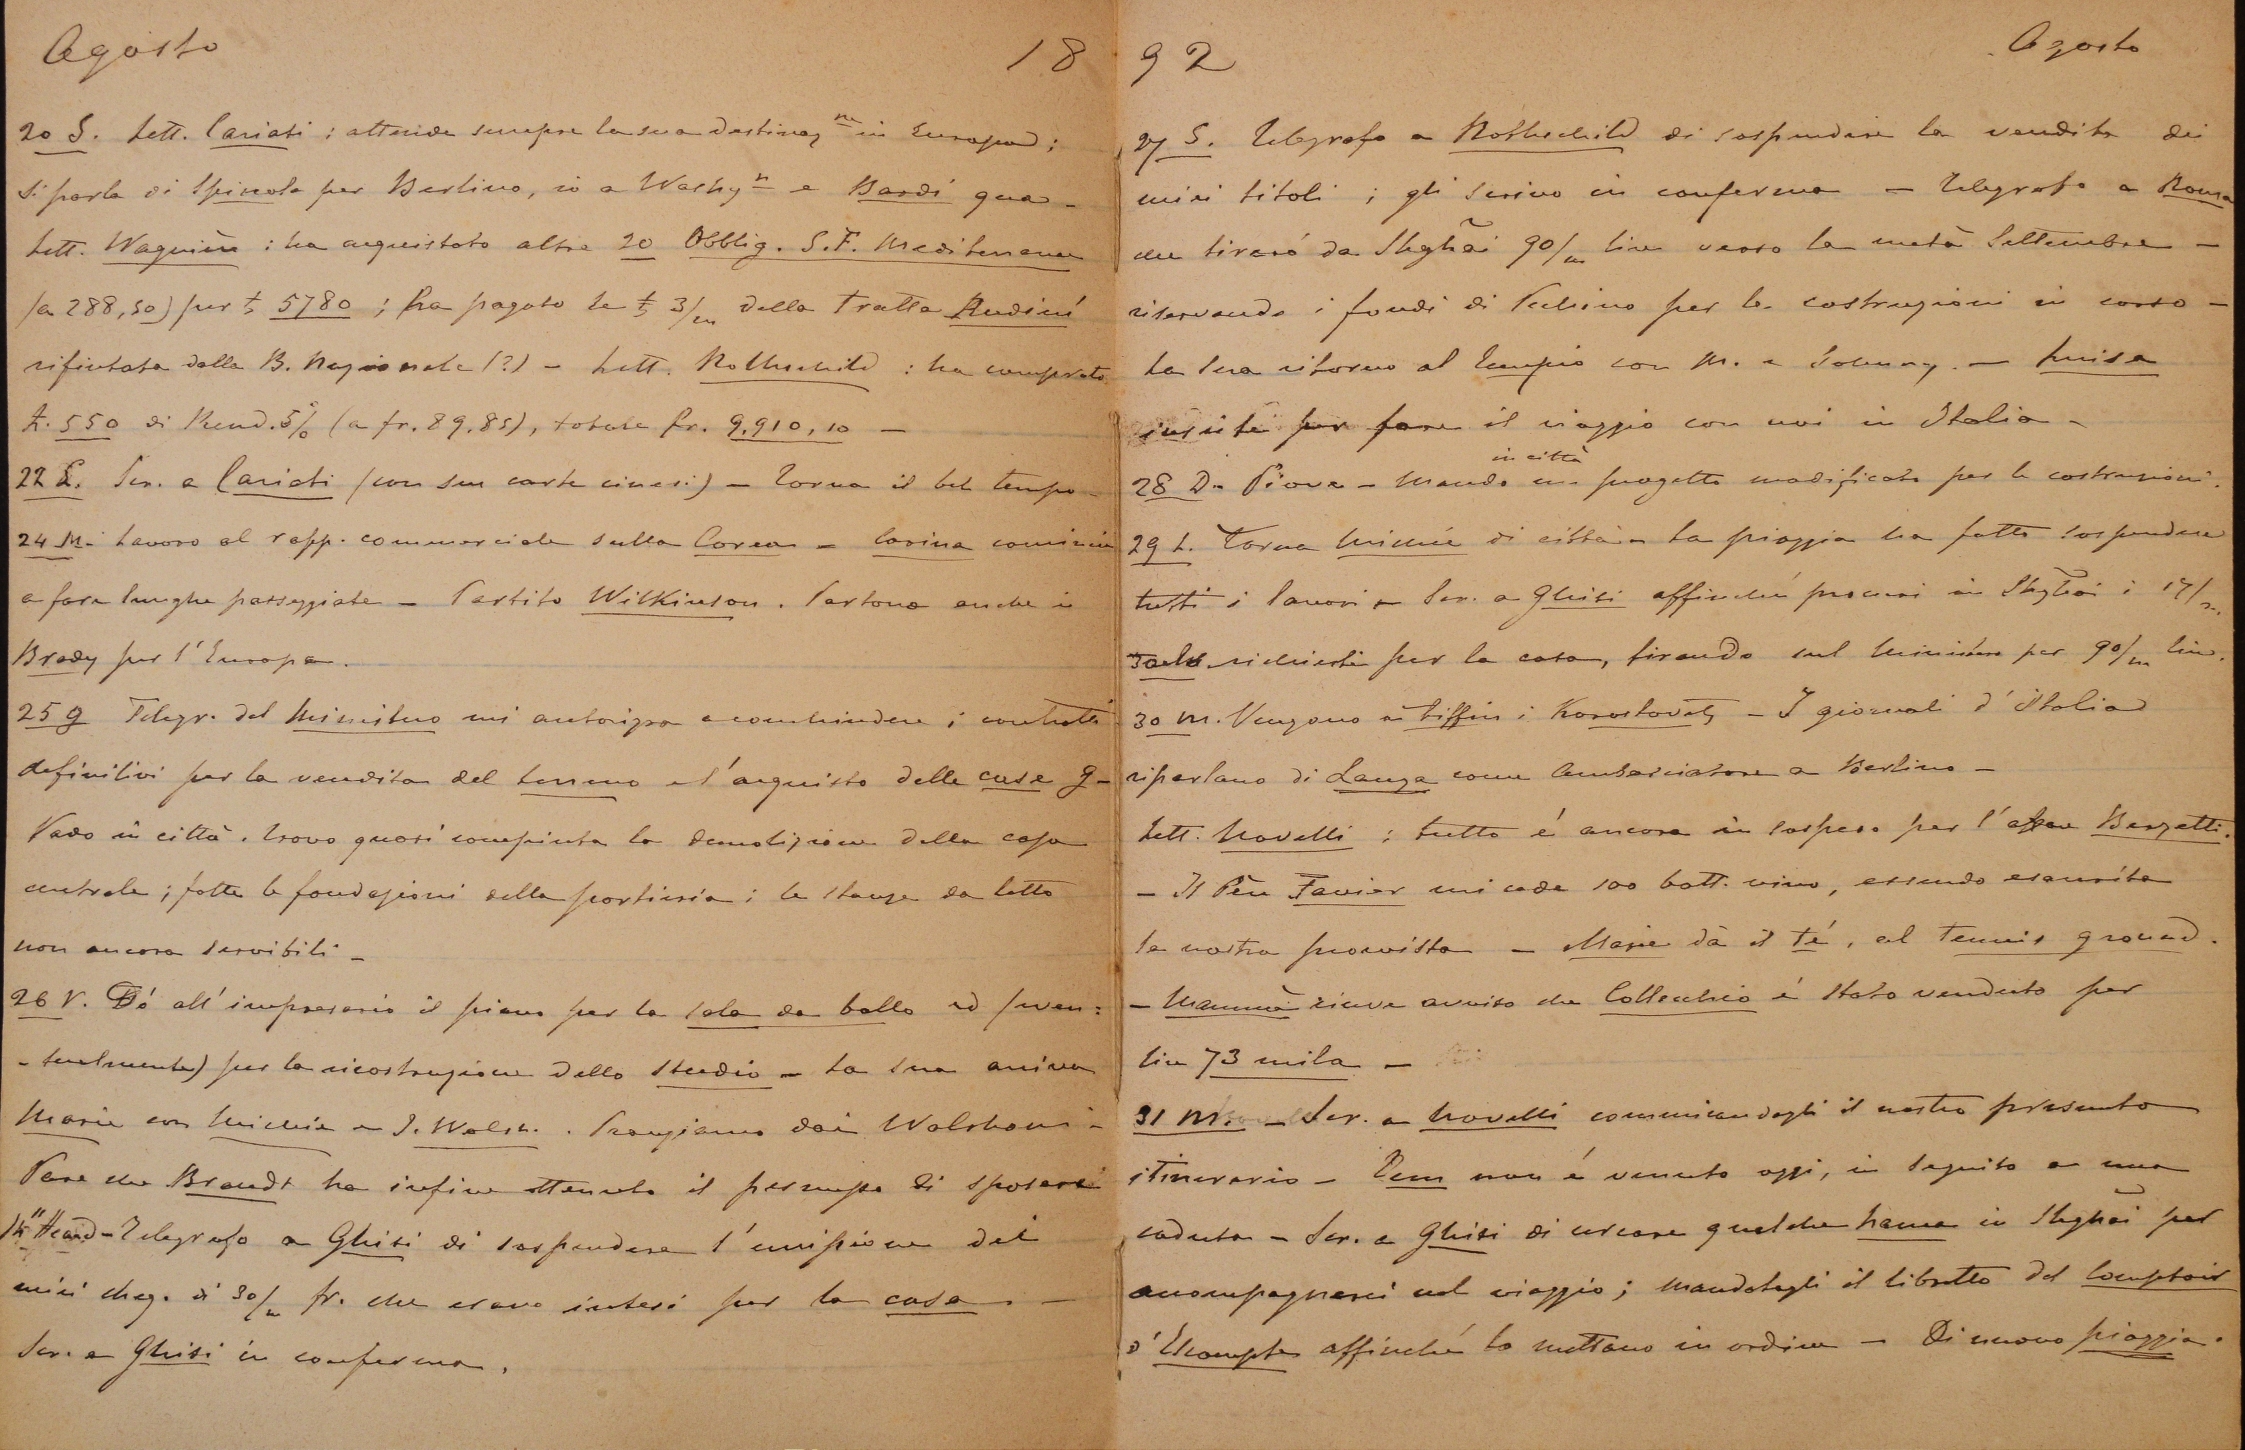 Agosto 18
20 S. Lett. Cariati : attende sempre la sua destinaz.ne in Europa ;
Si parla di Spinola per Berlino, io a Washg.n e Bardi qua –
Lett. Wagnière : ha acquistato altre 20 Obblig. S.F. Mediterranee
(a 288,50) per £ 5780 ; ha pagato le £ 3/m della tratta Rudinì
rifiutata dalla B. Nazionale (?) – Lett. Rothschild : ha comprato
£. 550 di Rend. 5% (a fr. 89,85), totale fr. 9.910,10 –
22 L. Scr. a Cariati (con sue carte cinesi) – Torna il bel tempo –
24 M. Lavoro al rapp. commerciale sulla Corea – Carina comincia
a fare lunghe passeggiate – Partito Wilkinson. Partono anche i
Brady per l'Europa.
25 G Telegr. del Ministero mi autorizza a conchiudere i contratti
definitivi per la vendita del terreno e l'acquisto delle case G –
Vado in città. Trovo quasi compiuta la demolizione della casa
centrale ; fatte le fondazioni della portineria ; le stanze da letto
non ancora servibili –
26 V. Dò all'impresario il piano per la sala da ballo ed (even=
-tualmente) per la ricostruzione dello studio – La sera arriva
Marie con Michie e J. Walsh. Pranziamo dai Walsham –
Pare che Brandt ha infine ottenuto il permesso di sposare
la Heard – Telegrafo a Ghisi di sospendere l'emissione dei
miei cheq. di 30/m fr. che erano intesi per la casa. –
Scr. a Ghisi in conferma.
92 Agosto
27 S. Telegrafo a Rothschild di sospendere la vendita dei
miei titoli ; gli scrivo in conferma – Telegrafo a Roma
che tirerò da Shghãi 90/m lire verso la metà Settembre –
riservando i fondi di Pechino per le costruzioni in corso –
La sera ritorno al tempio con M. e – Luisa
insiste per fare il viaggio con noi in Italia –
28 D. Piove – Mando in città un progetto modificato per le costruzioni.
29 L. Torna Michie di città – La pioggia ha fatto sospendere
tutti i lavori – Scr. a Ghisi affinché procuri in Shghãi i 17/m
taels richiesti per la casa, tirando sul Ministero per 90/m lire.
30 M. Vengono a tiffin i Korostovetz – I giornali d'Italia
riparlano di Lanza come Ambasciatore a Berlino –
Lett. Novelli : tutto é ancora in sospeso per l'affare Berzetti.
– Il Père Favier mi cede 100 bott. vino, essendo esaurita
la nostra provvista – Marie dà il té, al tennis ground.
– Mammà riceve avviso che Collecchio é stato venduto per
lire 73 mila –
31 M. – Scr. a Novelli comunicandogli il nostro presunto
itinerario – Pem non é venuto oggi, in seguito a una
caduta – Scr. a Ghisi di cercare qualche hama in Shghãi per
accompagnarci nel viaggio ; mandategli il libretto del Comptoir
d'Escompte affinché lo mettano in ordine – Di nuovo pioggia.